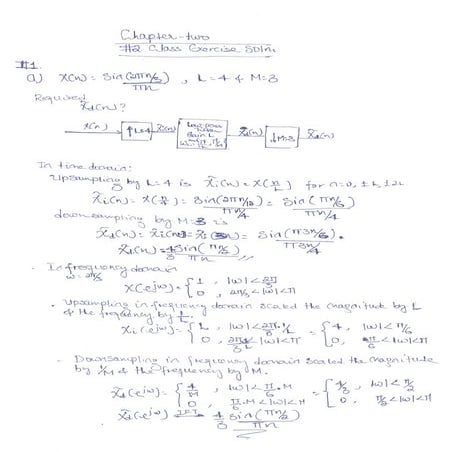 Chapter-two
#2 Class Exercise Soln.
#1.
a) x(n) = Sin(2πn/3)/πn , L=4 & M=3
Required
x̃d(n)?
x(n) ↑L=4 x̃i(n) Low-pass filter Gain L x̃i(n) ↓M=3 x̃d(n)
In time domain:
Upsampling by L=4 is x̃i(n) = x(n/L) for n=0, ±L, ±2L
x̃i(n) = x(n/4) = Sin(2πn/12)/(πn/4) = Sin(πn/6)/(πn/4)
downsampling by M=3 is
x̃d(n) = x̃i(nM) = x̃i(3n) = Sin(π3n/6)/(π3n/4).
x̃d(n) = 4/3 Sin(πn/2)/πn
• In frequency domain
ω=2π/3
X(e^jω) = {1, |ω|<2π/3
0, 2π/3<|ω|<π
• Upsampling in frequency domain scaled the magnitude by L
& the frequency by 1/L.
Xi(e^jω) = {L, |ω|<2π/3·1/L = {4, |ω|<π/6
0, <|ω|<π 0, π/6<|ω|<π
• Downsampling in frequency domain scaled the magnitude
by 1/M & the frequency by M.
X̃d(e^jω) = {4/M, |ω|<π/6·M = {4/3, |ω|<π/2
0, π/6·M<|ω|<π 0, π/2<|ω|<π
x̃d(e^jω) IFT 4/3 Sin(πn/2)/πn